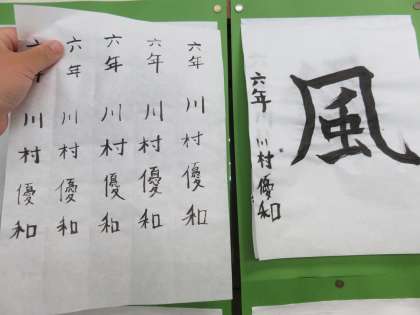 六年 川村優和
六年 川村優和
六年 川村優和
六年 川村優和
六年 川村優和
風
六年 川村優和